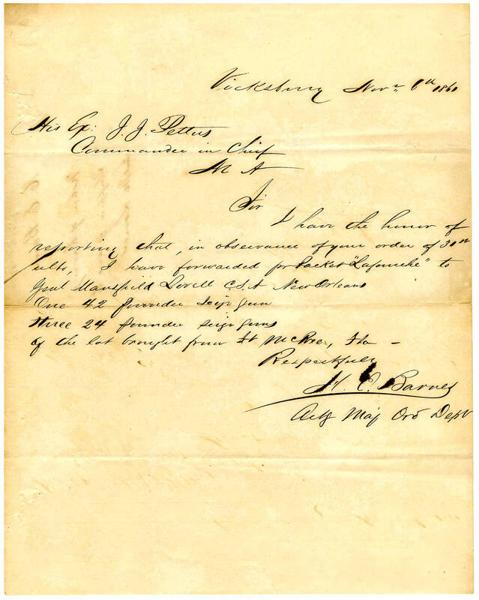 Vicksburg Nov. 6th 1861
His Ex: J. J. Pettus
Commander in Chief
M A
Sir
I have the honor of
reporting that, in observance of your order of 30th
ulto, I have forwarded pr Packet "Lafourche" to
Genl Mansfield Lovell C.S.A New Orleans
One 42 pounder seige gun
three 24 pounder seige guns
of the lot brought from Ft McRee, Fla -
Respectfully
H. C. Barnes
Actg Maj Ord Dept